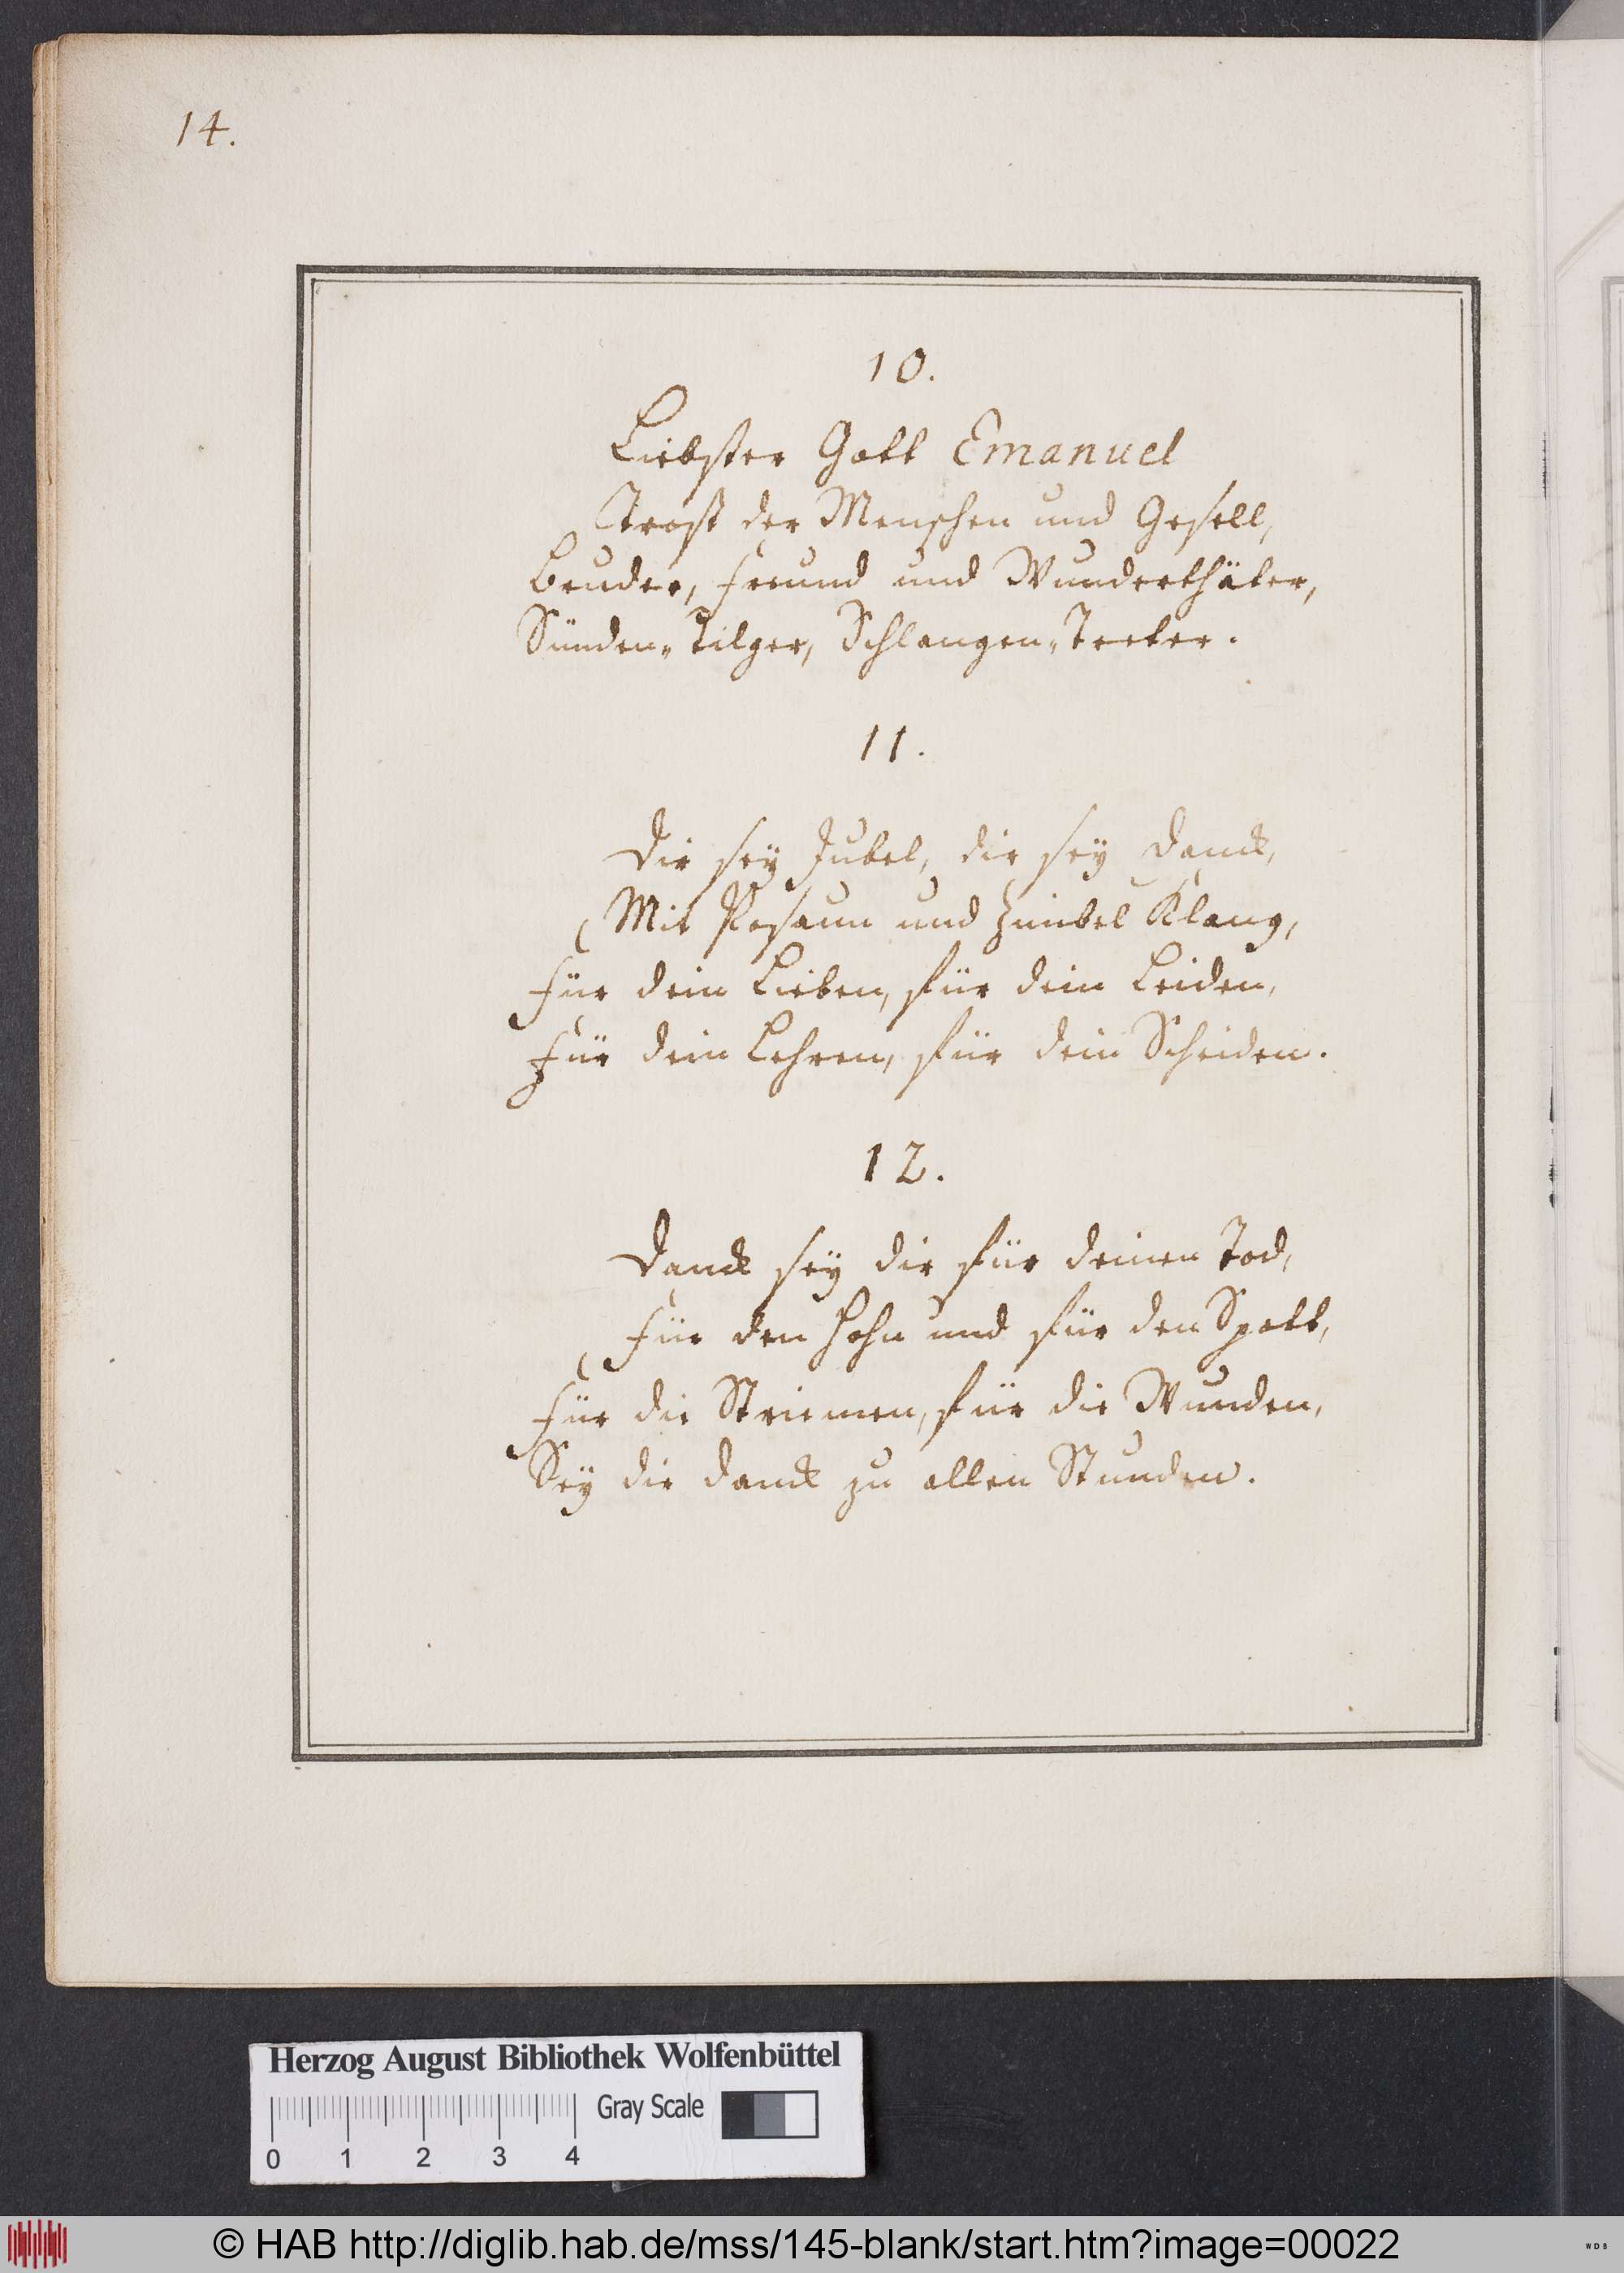 14.
10.
Liebster Gott Emanuel
Trost der Menschen und Gesell,
Bruder, Freund und Wunderthäter,
Sünden-Tilger, Schlangen-Treter.
11.
Dir sey Jubel, dir sey Danck,
Mit Posaun und Zimbel Klang,
Für dein Lieben, für dein Leiden,
Für dein Lehren, für dein Scheiden.
12.
Danck sey dir für deinen Tod,
Für den Hohn und für den Spott,
Für die Striemen, für die Wunden,
Sey dir Danck zu allen Stunden.
Herzog August Bibliothek Wolfenbüttel
Gray Scale
0 1 2 3 4
© HAB http://diglib.hab.de/mss/145-blank/start.htm?image=00022
WDB